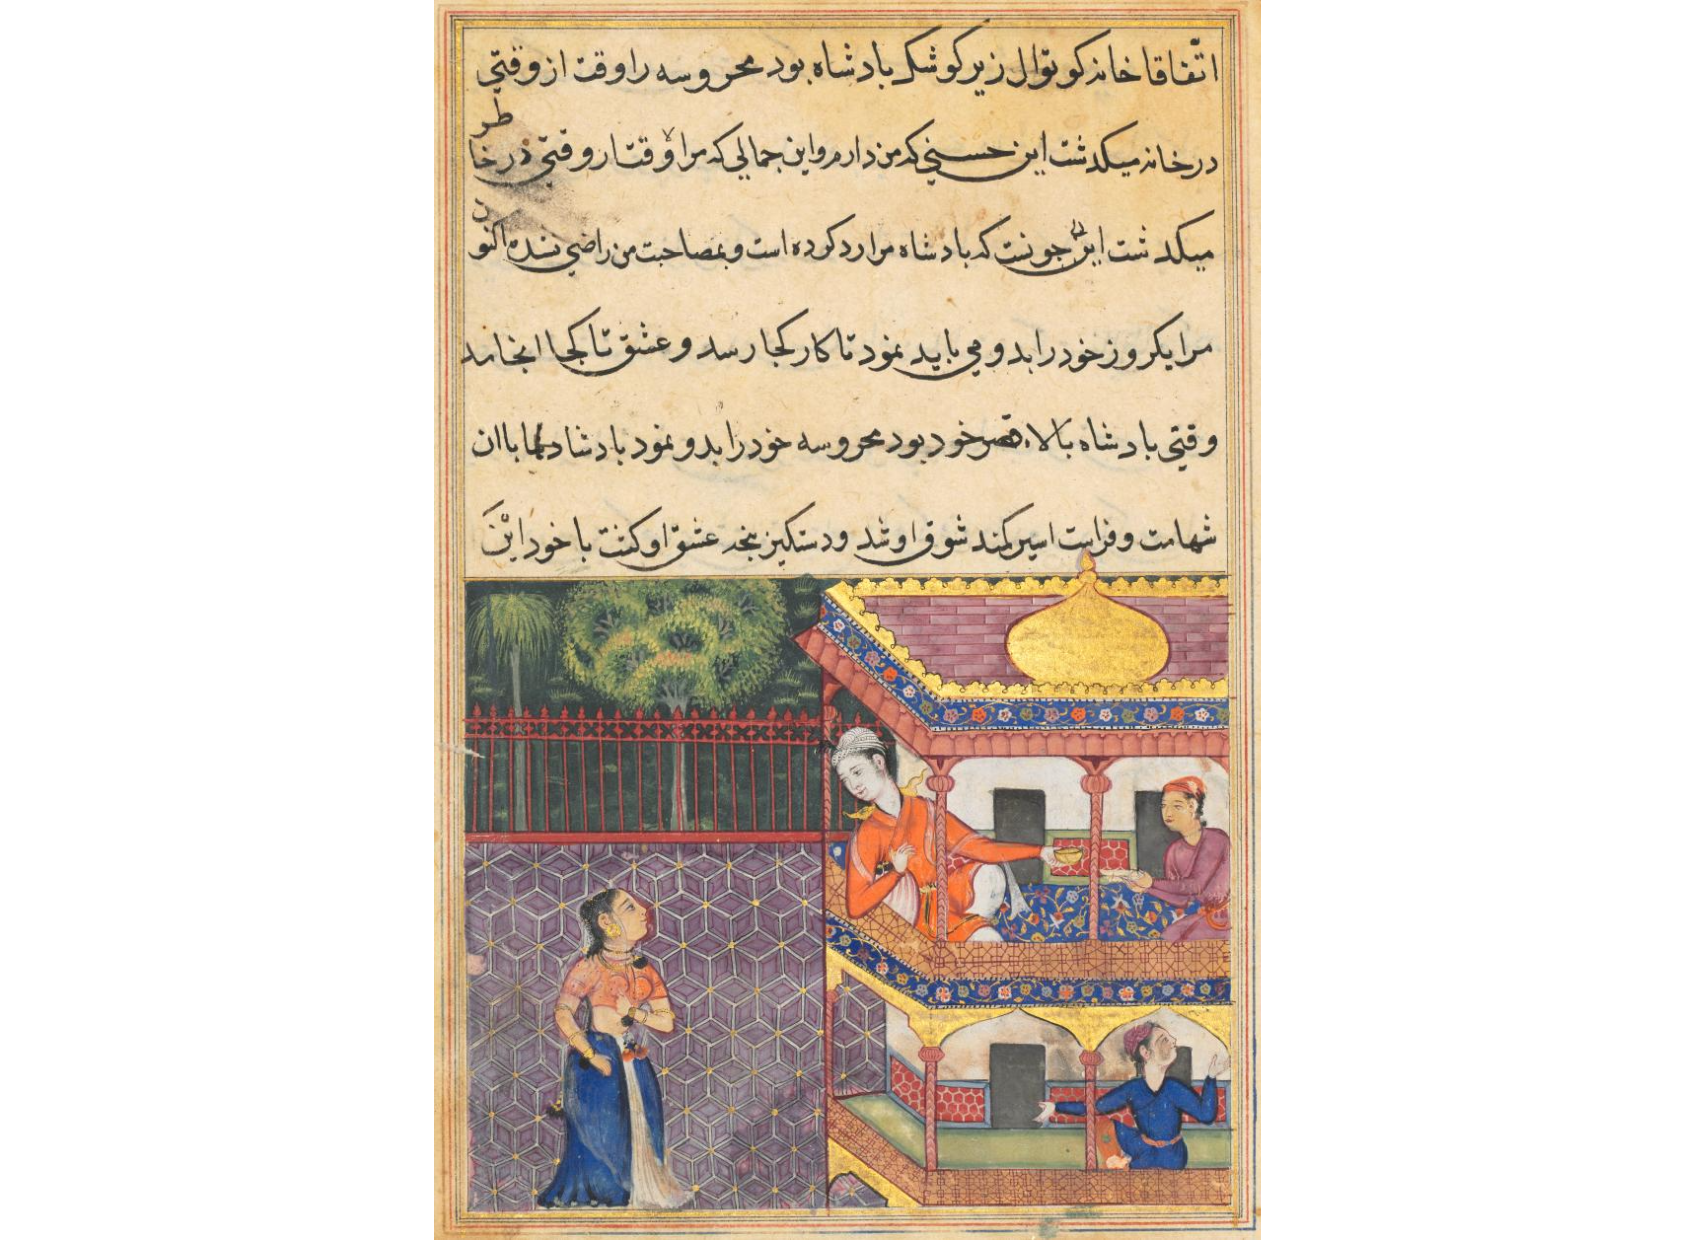 اتّفاقا خانه کوتوال زیر کوشک بادشاه بود محروسه را وقت از وقتی
در خانه میکدشت این حسنی که من دارم و این جمالی که مرا وقتا روقتی در خاطر
میکدشت این چونست که بادشاه مرا رد کرده است و بمصاحبت من راضی نشده اکنون
مرا یکروز خود را بدو می باید نمود تا کار کجا رسد و عشق تا کجا انجامد
وقتی بادشاه بالاء قصر خود بود محروسه خود را بدو نمود بادشاه با ان
شهامت و فراست اسیر کمند شوق او شد و دستکیر پنجه عشق او کشت با خود این